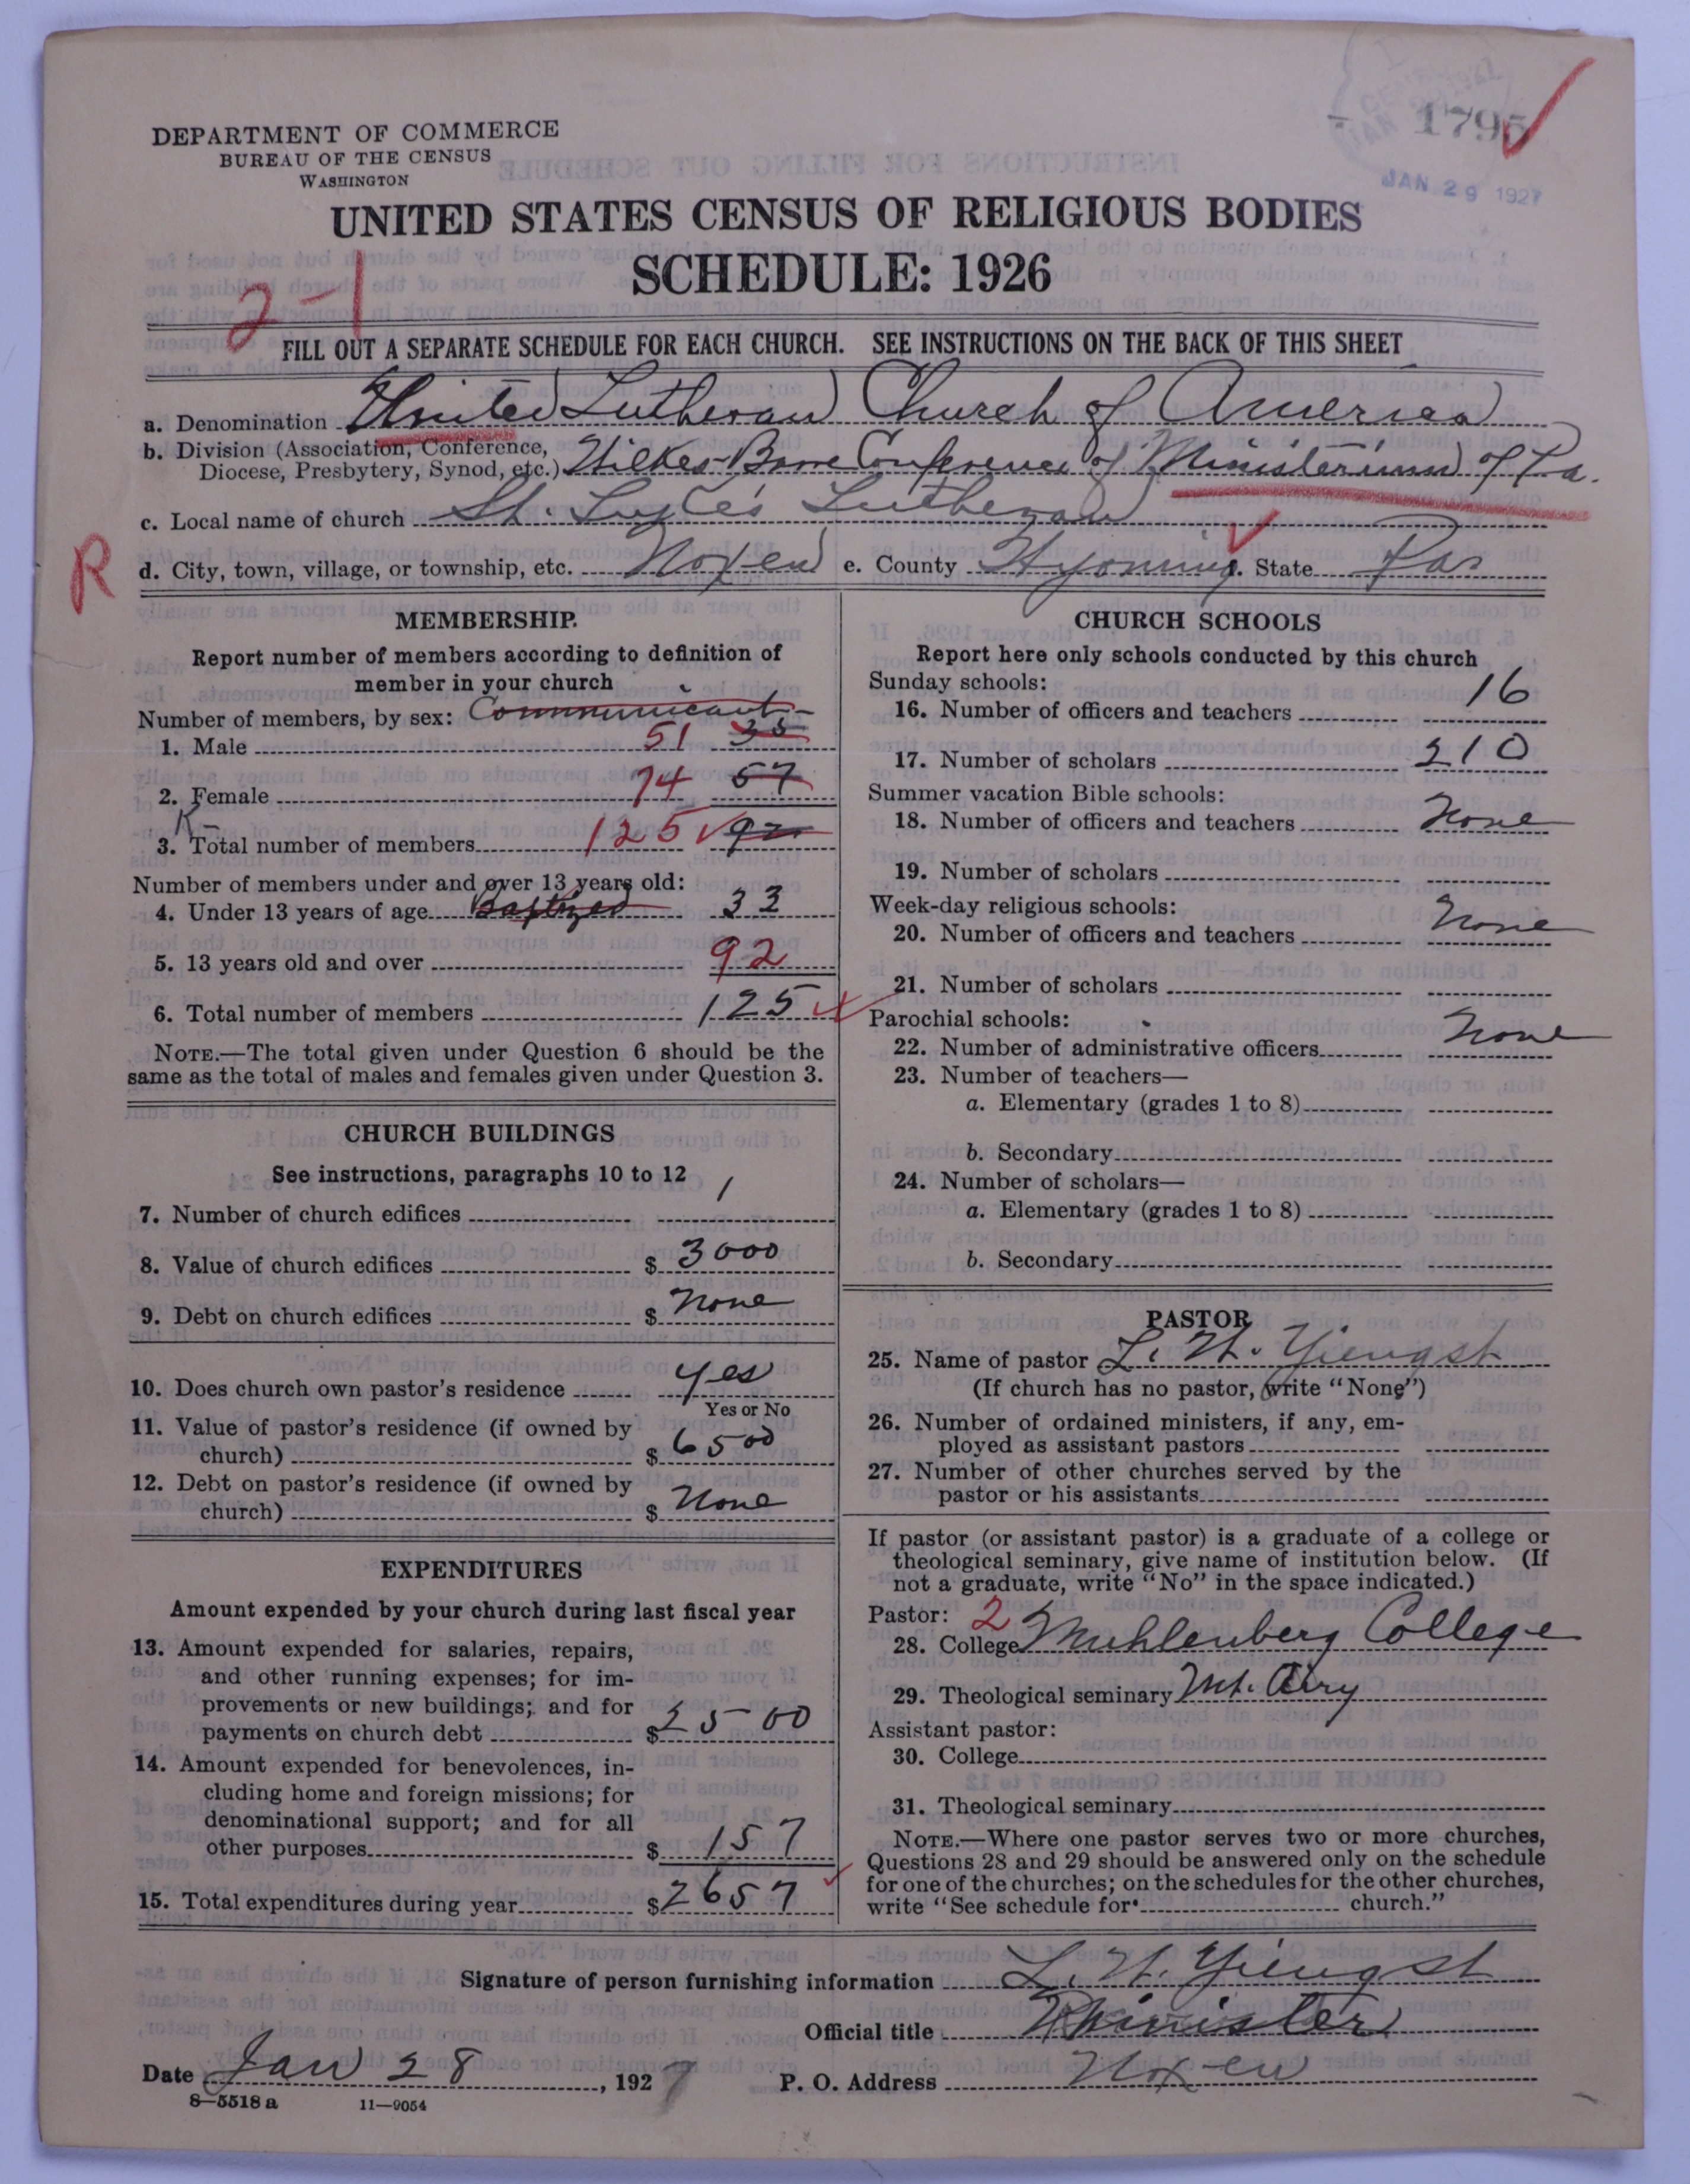 1795
JAN 29 1927
DEPARTMENT OF COMMERCE
BUREAU OF THE CENSUS
WASHINGTON
UNITED STATES CENSUS OF RELIGIOUS BODIES
SCHEDULE: 1926
2-1
FILL OUT A SEPARATE SCHEDULE FOR EACH CHURCH. SEE INSTRUCTIONS ON THE BACK OF THIS SHEET
a. Denomination United Lutheran Church of America
b. Division (Association, Conference,
Diocese, Presbytery, Synod, etc.) Wilkes-Barre Conference of Ministerium of Pa.
c. Local name of church St. Luke's Lutheran
R
d. City, town, village, or township, etc. Noxen e. County Wyoming State Pa
MEMBERSHIP.
Report number of members according to definition of
member in your church
Number of members, by sex: Communicant
1. Male 51 35
2. Female 74 57
3. Total number of members 125 92
Number of members under and over 13 years old:
4. Under 13 years of age Baptized 33
5. 13 years old and over 92
6. Total number of members 125
NOTE.—The total given under Question 6 should be the
same as the total of males and females given under Question 3.
CHURCH BUILDINGS
See instructions, paragraphs 10 to 12
7. Number of church edifices 1
8. Value of church edifices $ 3000
9. Debt on church edifices $ None
10. Does church own pastor's residence yes
Yes or No
11. Value of pastor's residence (if owned by
church) $ 6500
12. Debt on pastor's residence (if owned by
church) $ None
EXPENDITURES
Amount expended by your church during last fiscal year
13. Amount expended for salaries, repairs,
and other running expenses; for im-
provements or new buildings; and for
payments on church debt $ 2500
14. Amount expended for benevolences, in-
cluding home and foreign missions; for
denominational support; and for all
other purposes $ 157
15. Total expenditures during year $ 2657
CHURCH SCHOOLS
Report here only schools conducted by this church
Sunday schools:
16. Number of officers and teachers 16
17. Number of scholars 210
Summer vacation Bible schools:
18. Number of officers and teachers None
19. Number of scholars
Week-day religious schools:
20. Number of officers and teachers None
21. Number of scholars
Parochial schools:
22. Number of administrative officers None
23. Number of teachers—
a. Elementary (grades 1 to 8)
b. Secondary
24. Number of scholars—
a. Elementary (grades 1 to 8)
b. Secondary
PASTOR
25. Name of pastor L. W. Yiengst
(If church has no pastor, write "None")
26. Number of ordained ministers, if any, em-
ployed as assistant pastors
27. Number of other churches served by the
pastor or his assistants
If pastor (or assistant pastor) is a graduate of a college or
theological seminary, give name of institution below. (If
not a graduate, write "No" in the space indicated.)
Pastor: 2
28. College Muhlenberg College
29. Theological seminary Mt. Airy
Assistant pastor:
30. College
31. Theological seminary
NOTE.—Where one pastor serves two or more churches,
Questions 28 and 29 should be answered only on the schedule
for one of the churches; on the schedules for the other churches,
write "See schedule for church."
Signature of person furnishing information L. W. Yiengst
Official title Minister
Date Jan 28, 1927 P. O. Address Noxen
8—5518a 11—9054